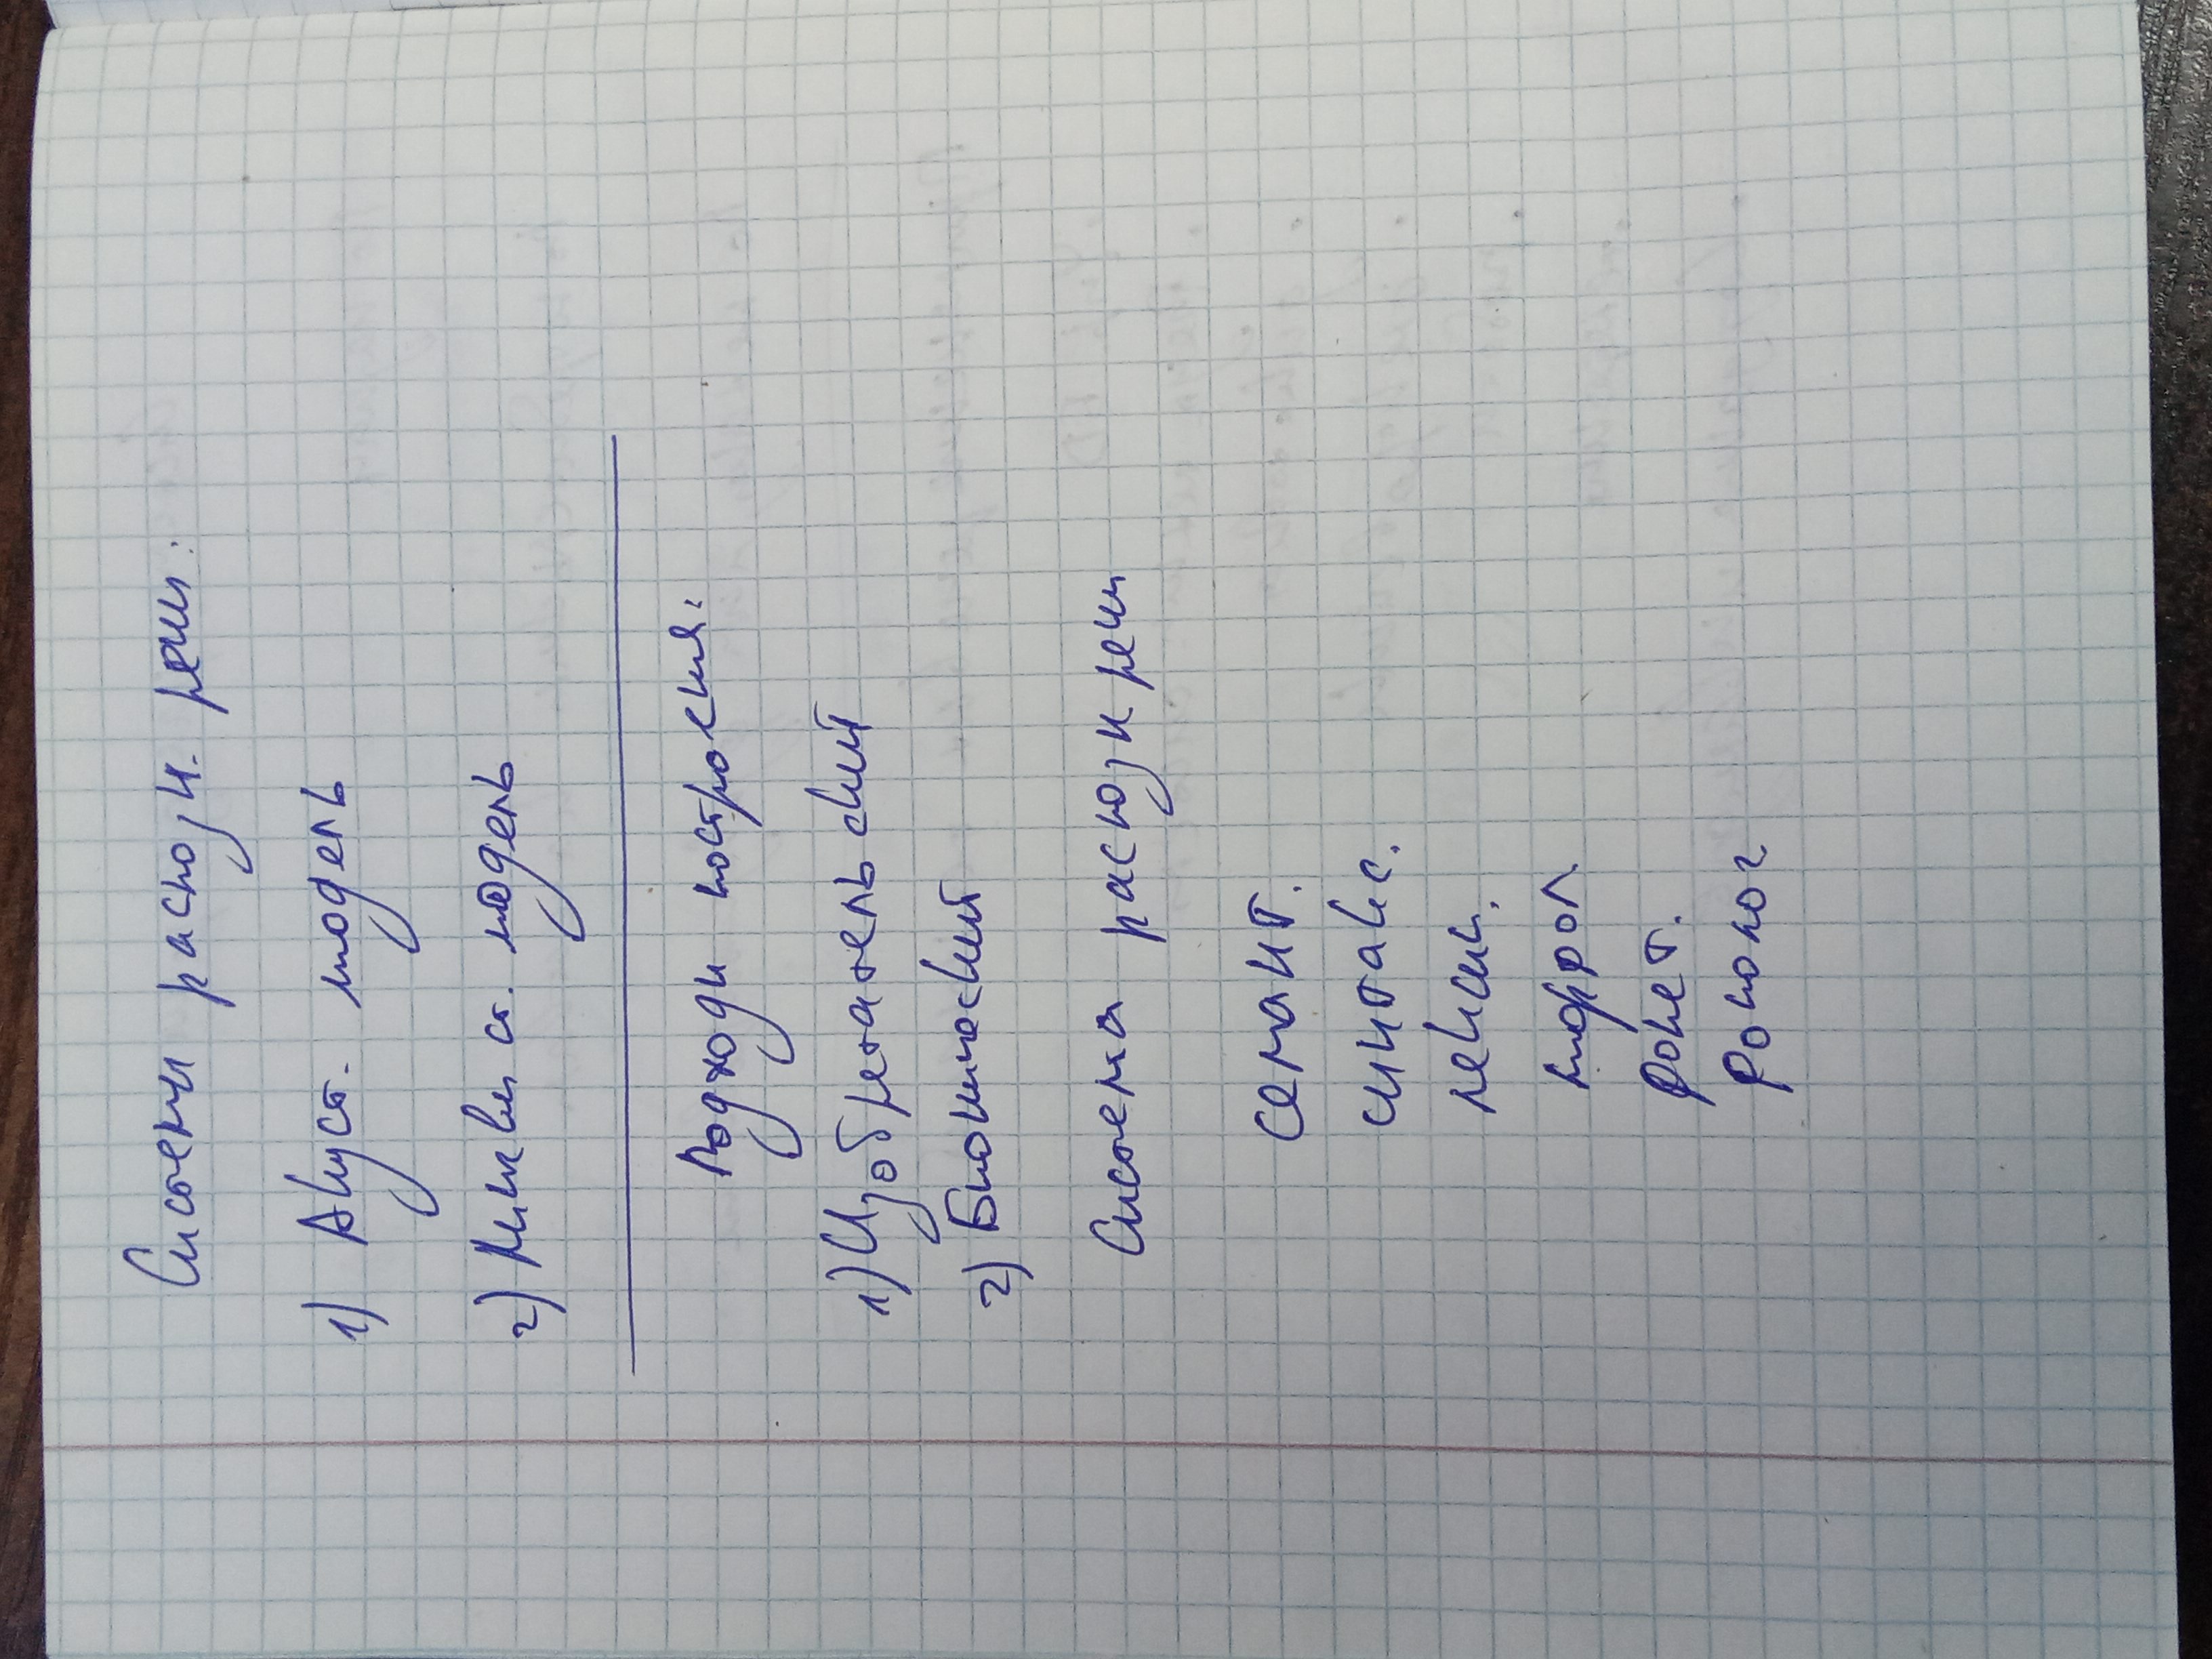 Системы распозн. речи:
1) Акуст. модель
2) Лингвист. модель
Подходы построения:
1) Изобретательский
2) Бионический
Система распозн речи
семант.
синтакс.
лексич.
морфол
фонет.
фонолог